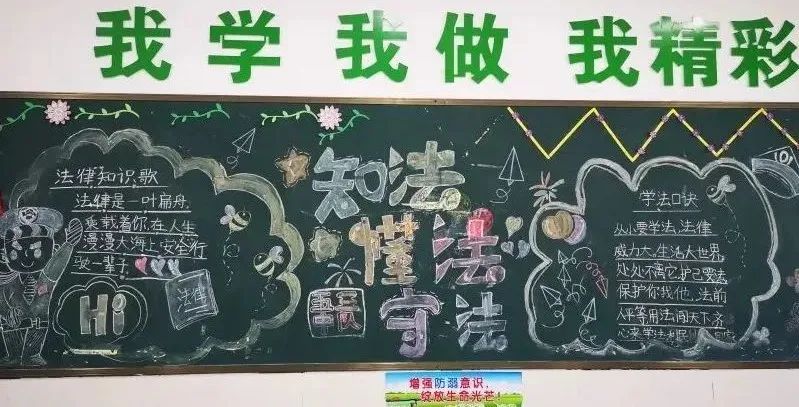 我学 我做 我精彩
法律知识歌
法律是一叶扁舟,
乘载着你,在人生
漫漫大海上,安全行
驶一辈子.
Hi
法律
知法
懂法
守法
中队
学法口诀
从小要学法,法律
威力大,生活大世界,
处处不离它,护己要法
保护你我他,法前
人平等用法闯天下齐
心来学法
增强防溺意识,
绽放生命光芒!